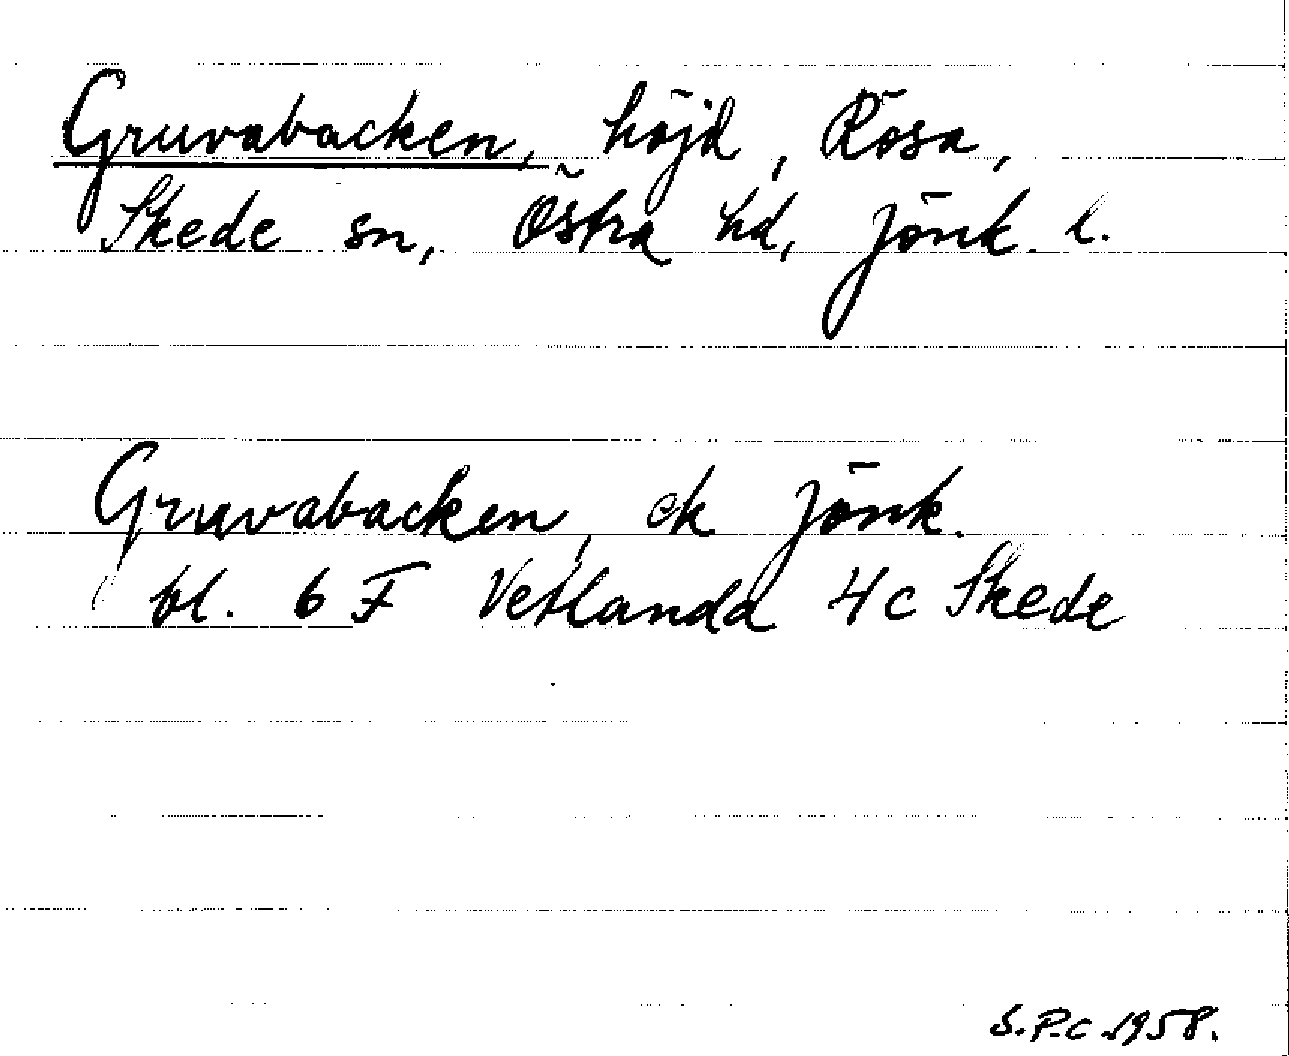 Gruvabacken, höjd, Rösa,
Skede sn, Östra hd, Jönk. l.
Gruvabacken, ek Jönk.
bl. 6 F Vetlanda 4c Skede
S.P.C. 1958.